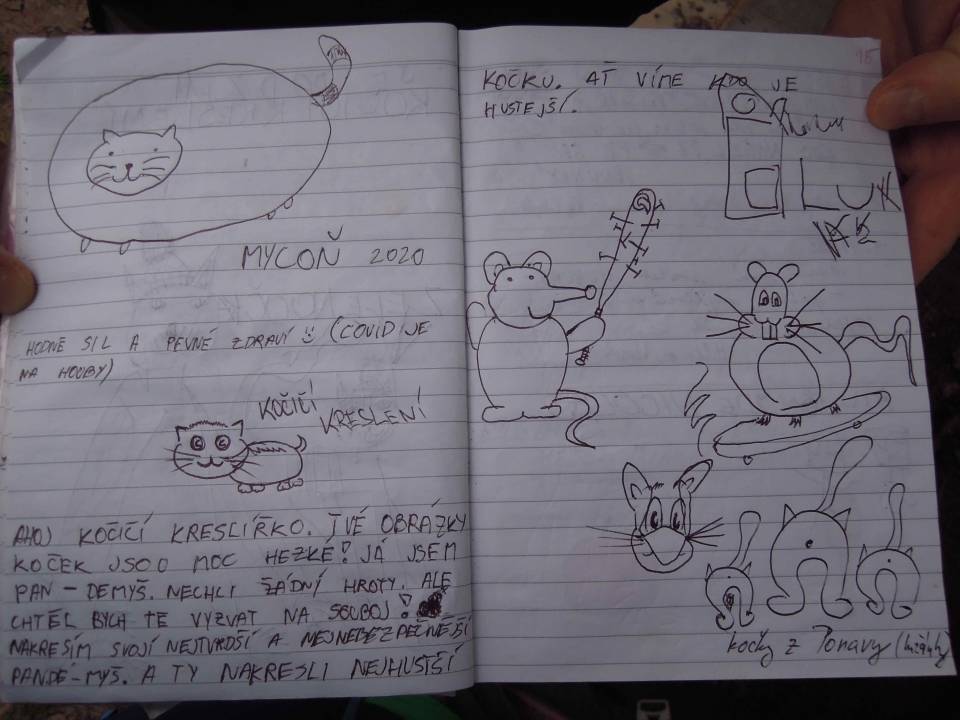 MYCOŇ 2020
HODNĚ SIL A PEVNÉ ZDRAVÍ (COVID JE
NA HOUBY)
KOČIČÍ
KRESLENÍ
AHOJ KOČIČÍ KRESLÍŘKO. TVÉ OBRÁZKY
KOČEK JSOU MOC HEZKÉ! JÁ JSEM
PAN-DEMYŠ. NECHCI ŽÁDNÍ HROTY. ALE
CHTĚL BYCH TĚ VYZVAT NA SOUBOJ!
NAKRESÍM SVOJÍ NEJTVRDŠÍ A NEJNEBEZPEČNĚJŠÍ
PANDE-MYŠ. A TY NAKRESLI NEJHUSTŠÍ
15
KOČKU. AŤ VÍME KDO JE
HUSTEJŠÍ.
LUK
kočky z Ponavy